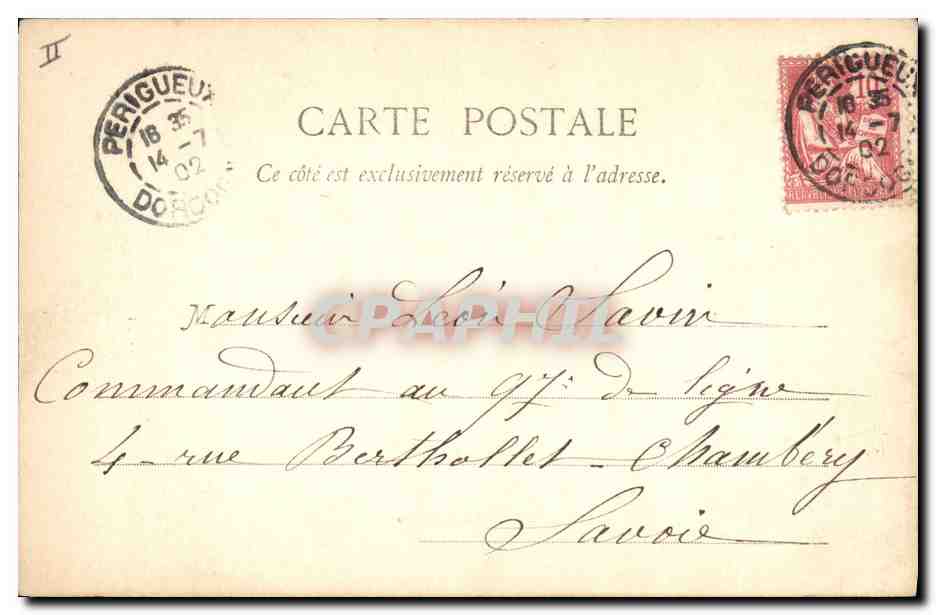 II
PERIGUEUX
18 35
14 -7
02
DORDOGNE
PERIGUEUX
10
18 35
14 -7
02
DORDOGNE
CARTE POSTALE
Ce côté est exclusivement réservé à l'adresse.
CPAPHIL
Monsieur Léon Savin
Commandant au 97e de ligne
4 - rue Berthollet - Chambéry
Savoie